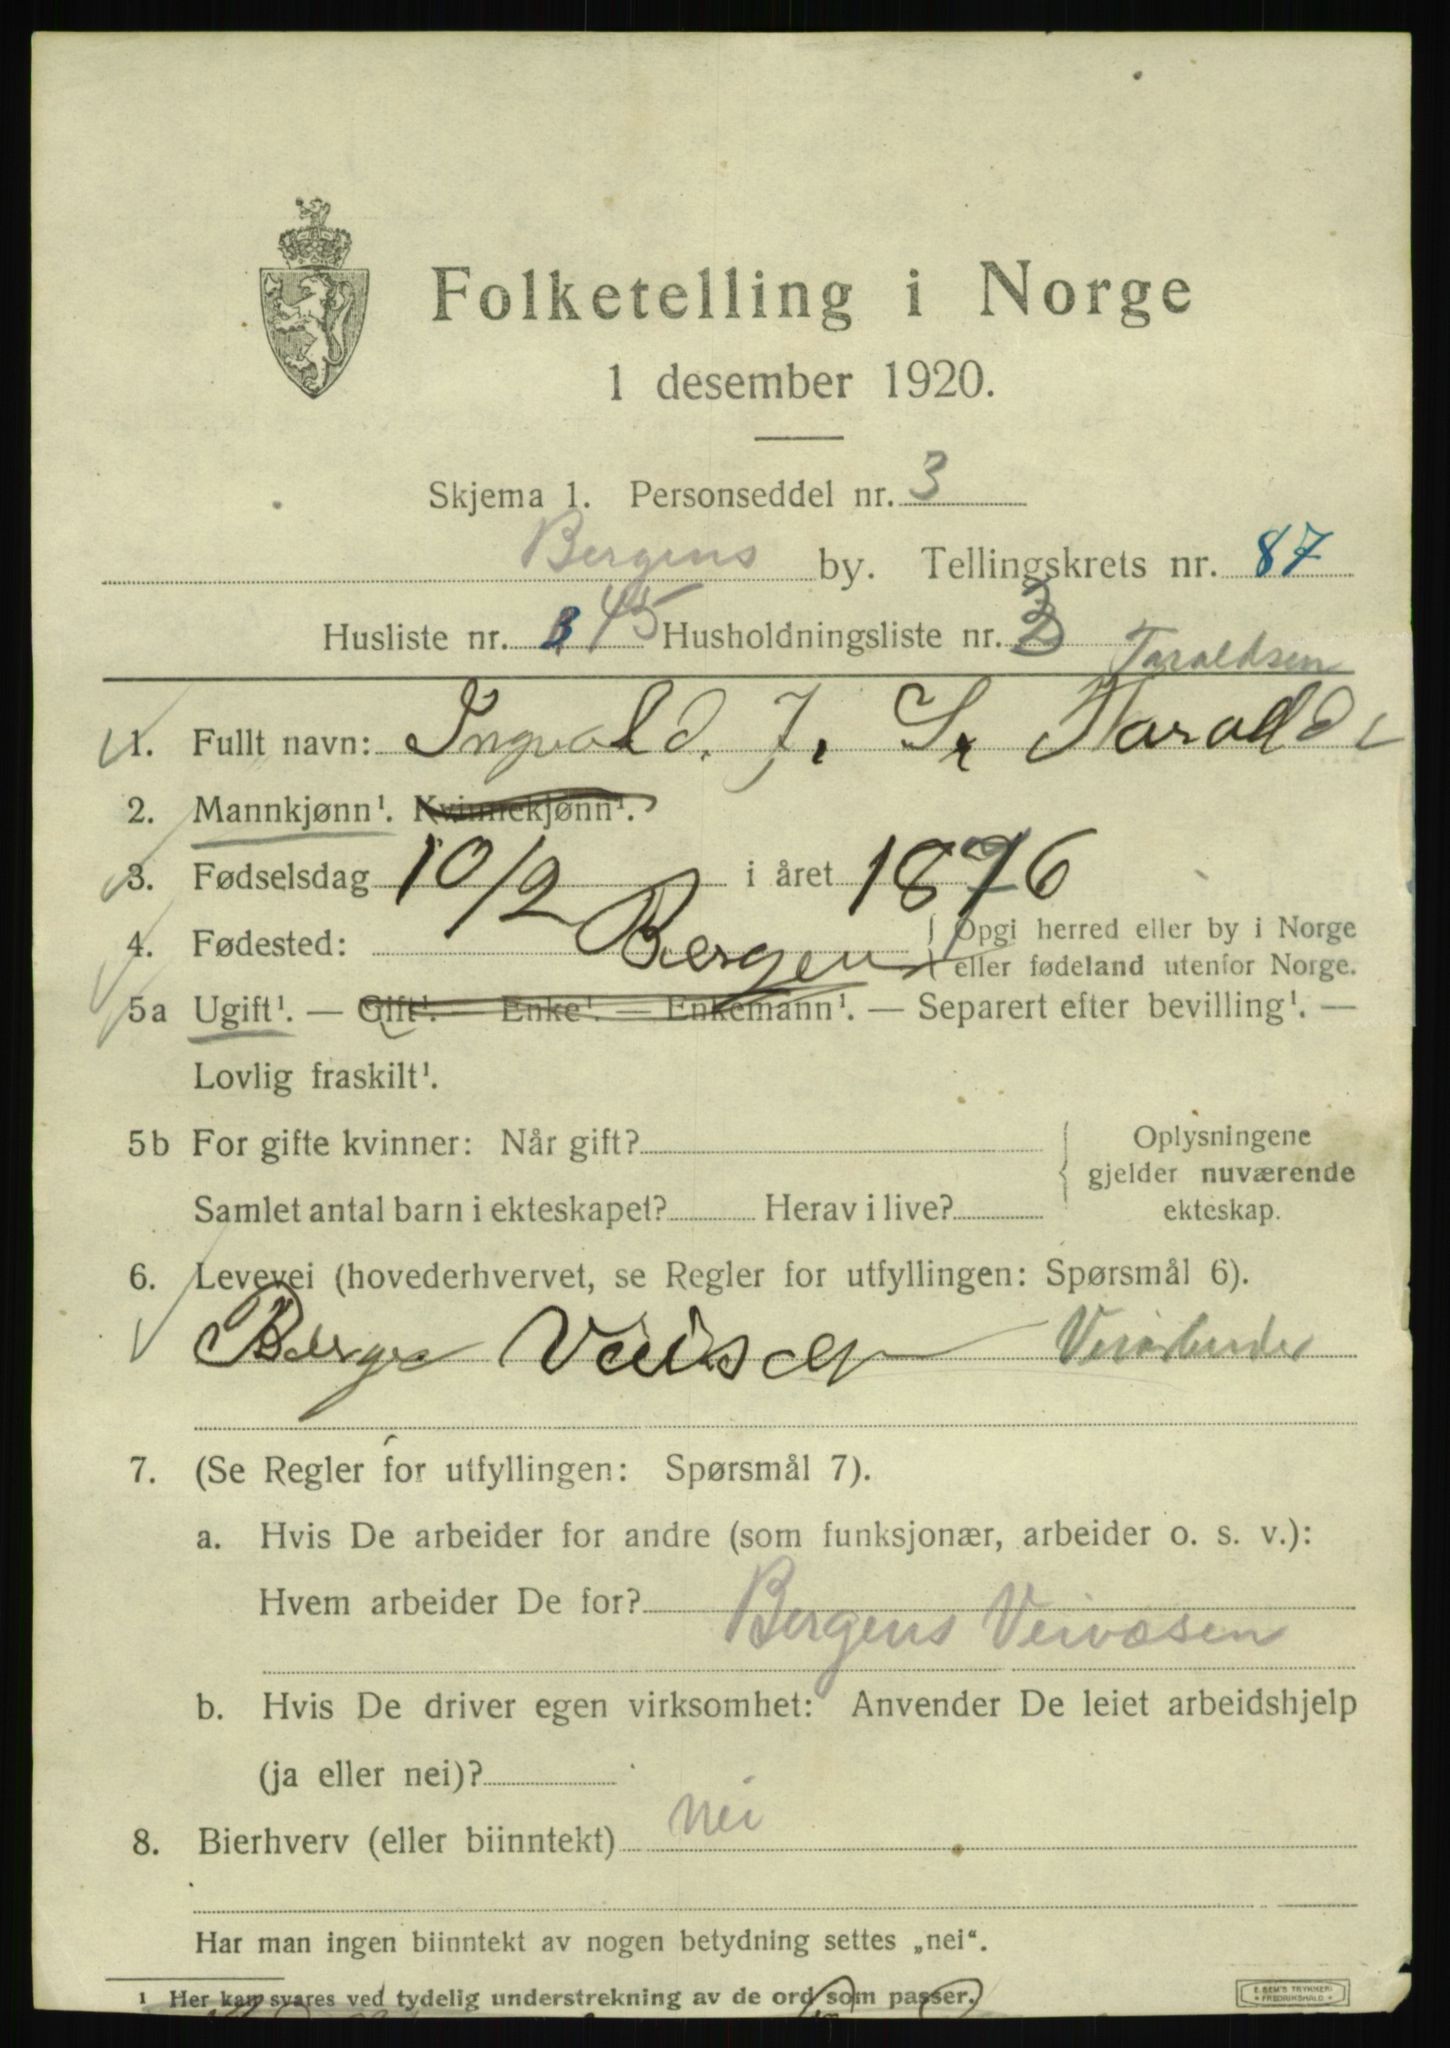 Folketelling i Norge
1 desember 1920.
Skjema 1. Personseddel nr. 3
Bergens by. Tellingskrets nr. 87
Husliste nr. 45 Husholdningsliste nr.
Taraldsen
1. Fullt navn: Ingvald. J. S.
2. Mannkjønn¹. Kvinnekjønn¹.
3. Fødselsdag 10/2 i året 1876
4. Fødested: Bergen { Opgi herred eller by i Norge
eller fødeland utenfor Norge.
5a Ugift¹. — Gift¹. — Enke¹. — Enkemann¹. — Separert efter bevilling¹. —
Lovlig fraskilt¹.
5b For gifte kvinner: Når gift? { Oplysningene
gjelder nuværende
Samlet antal barn i ekteskapet? Herav i live? ekteskap.
6. Levevei (hovederhvervet, se Regler for utfyllingen: Spørsmål 6).
Veiarbeider
7. (Se Regler for utfyllingen: Spørsmål 7).
a. Hvis De arbeider for andre (som funksjonær, arbeider o. s. v.):
Hvem arbeider De for?
Bergens Veivæsen
b. Hvis De driver egen virksomhet: Anvender De leiet arbeidshjelp
(ja eller nei)?
8. Bierhverv (eller biinntekt) nei
Har man ingen biinntekt av nogen betydning settes „nei“.
¹ Her kan svares ved tydelig understrekning av de ord som passer.
E. SEM'S TRYKKERI
FREDRIKSHALD